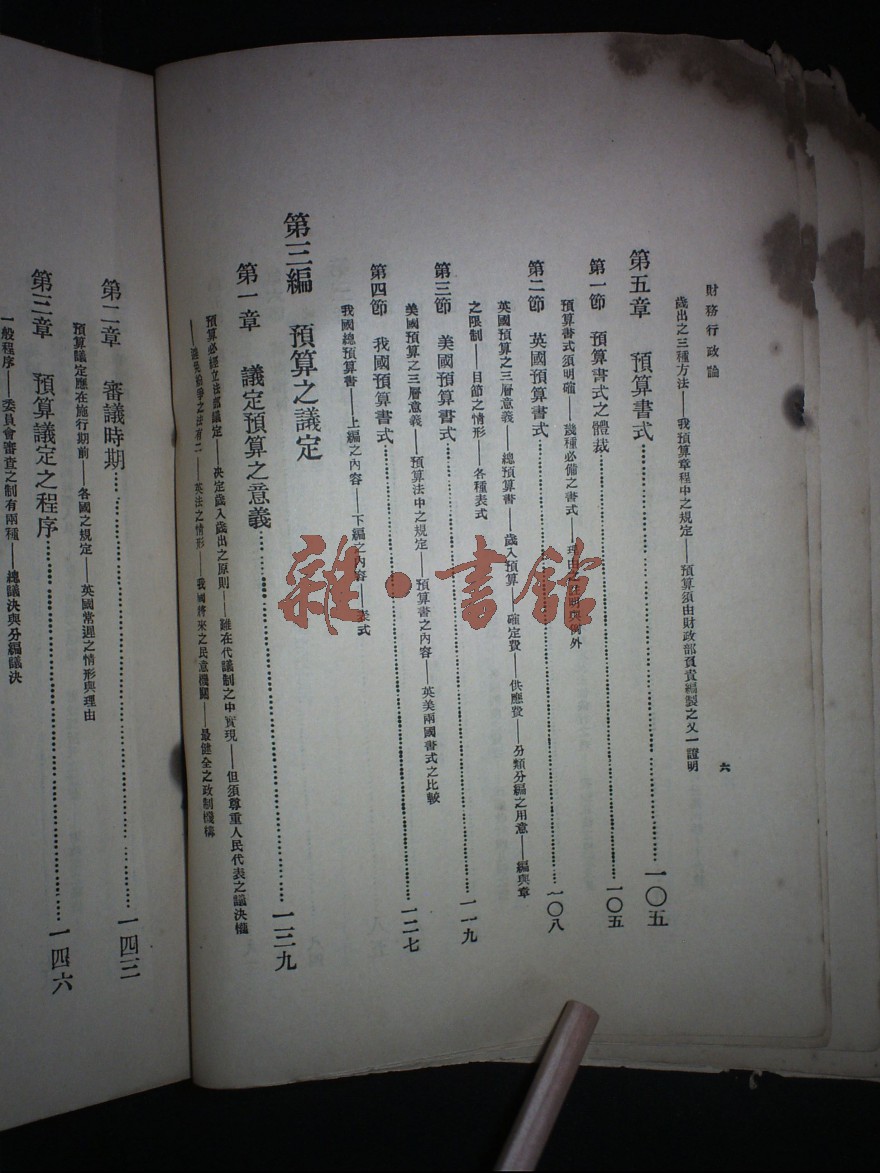 財務行政論
六
歲出之三種方法——我預算章程中之規定——預算須由財政部負責編製之又一證明
第五章 預算書式……一〇五
第一節 預算書式之體裁……一〇五
預算書式須明確——幾種必備之書式——理由之說明與例外
第二節 英國預算書式……一〇八
英國預算之三層意義——總預算書——歲入預算——確定費——供應費——分類分編之用意——編與章
之限制——目節之情形——各種表式
第三節 美國預算書式……一一九
美國預算之三層意義——預算法中之規定——預算書之內容——英美兩國書式之比較
第四節 我國預算書式……一二七
我國總預算書——上編之內容——下編之內容——表式
第三編 預算之議定
第一章 議定預算之意義……一三九
預算必經立法部議定——決定歲入歲出之原則——雖在代議制之中實現——但須尊重人民代表之議決權
——之法有二——英法之情形——我國將來之民意機關——最健全之政制機構
第二章 審議時期……一四三
預算議定應在施行期前——各國之規定——英國常遲之情形與理由
第三章 預算議定之程序……一四六
一般程序——委員會審查之制有兩種——總議決與分編議決
雜·書館